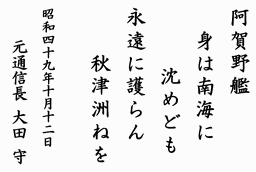 阿賀野艦
身は南海に
沈めども
永遠に護らん
秋津洲ねを
昭和四十九年十月十二日
元通信長 大田 守